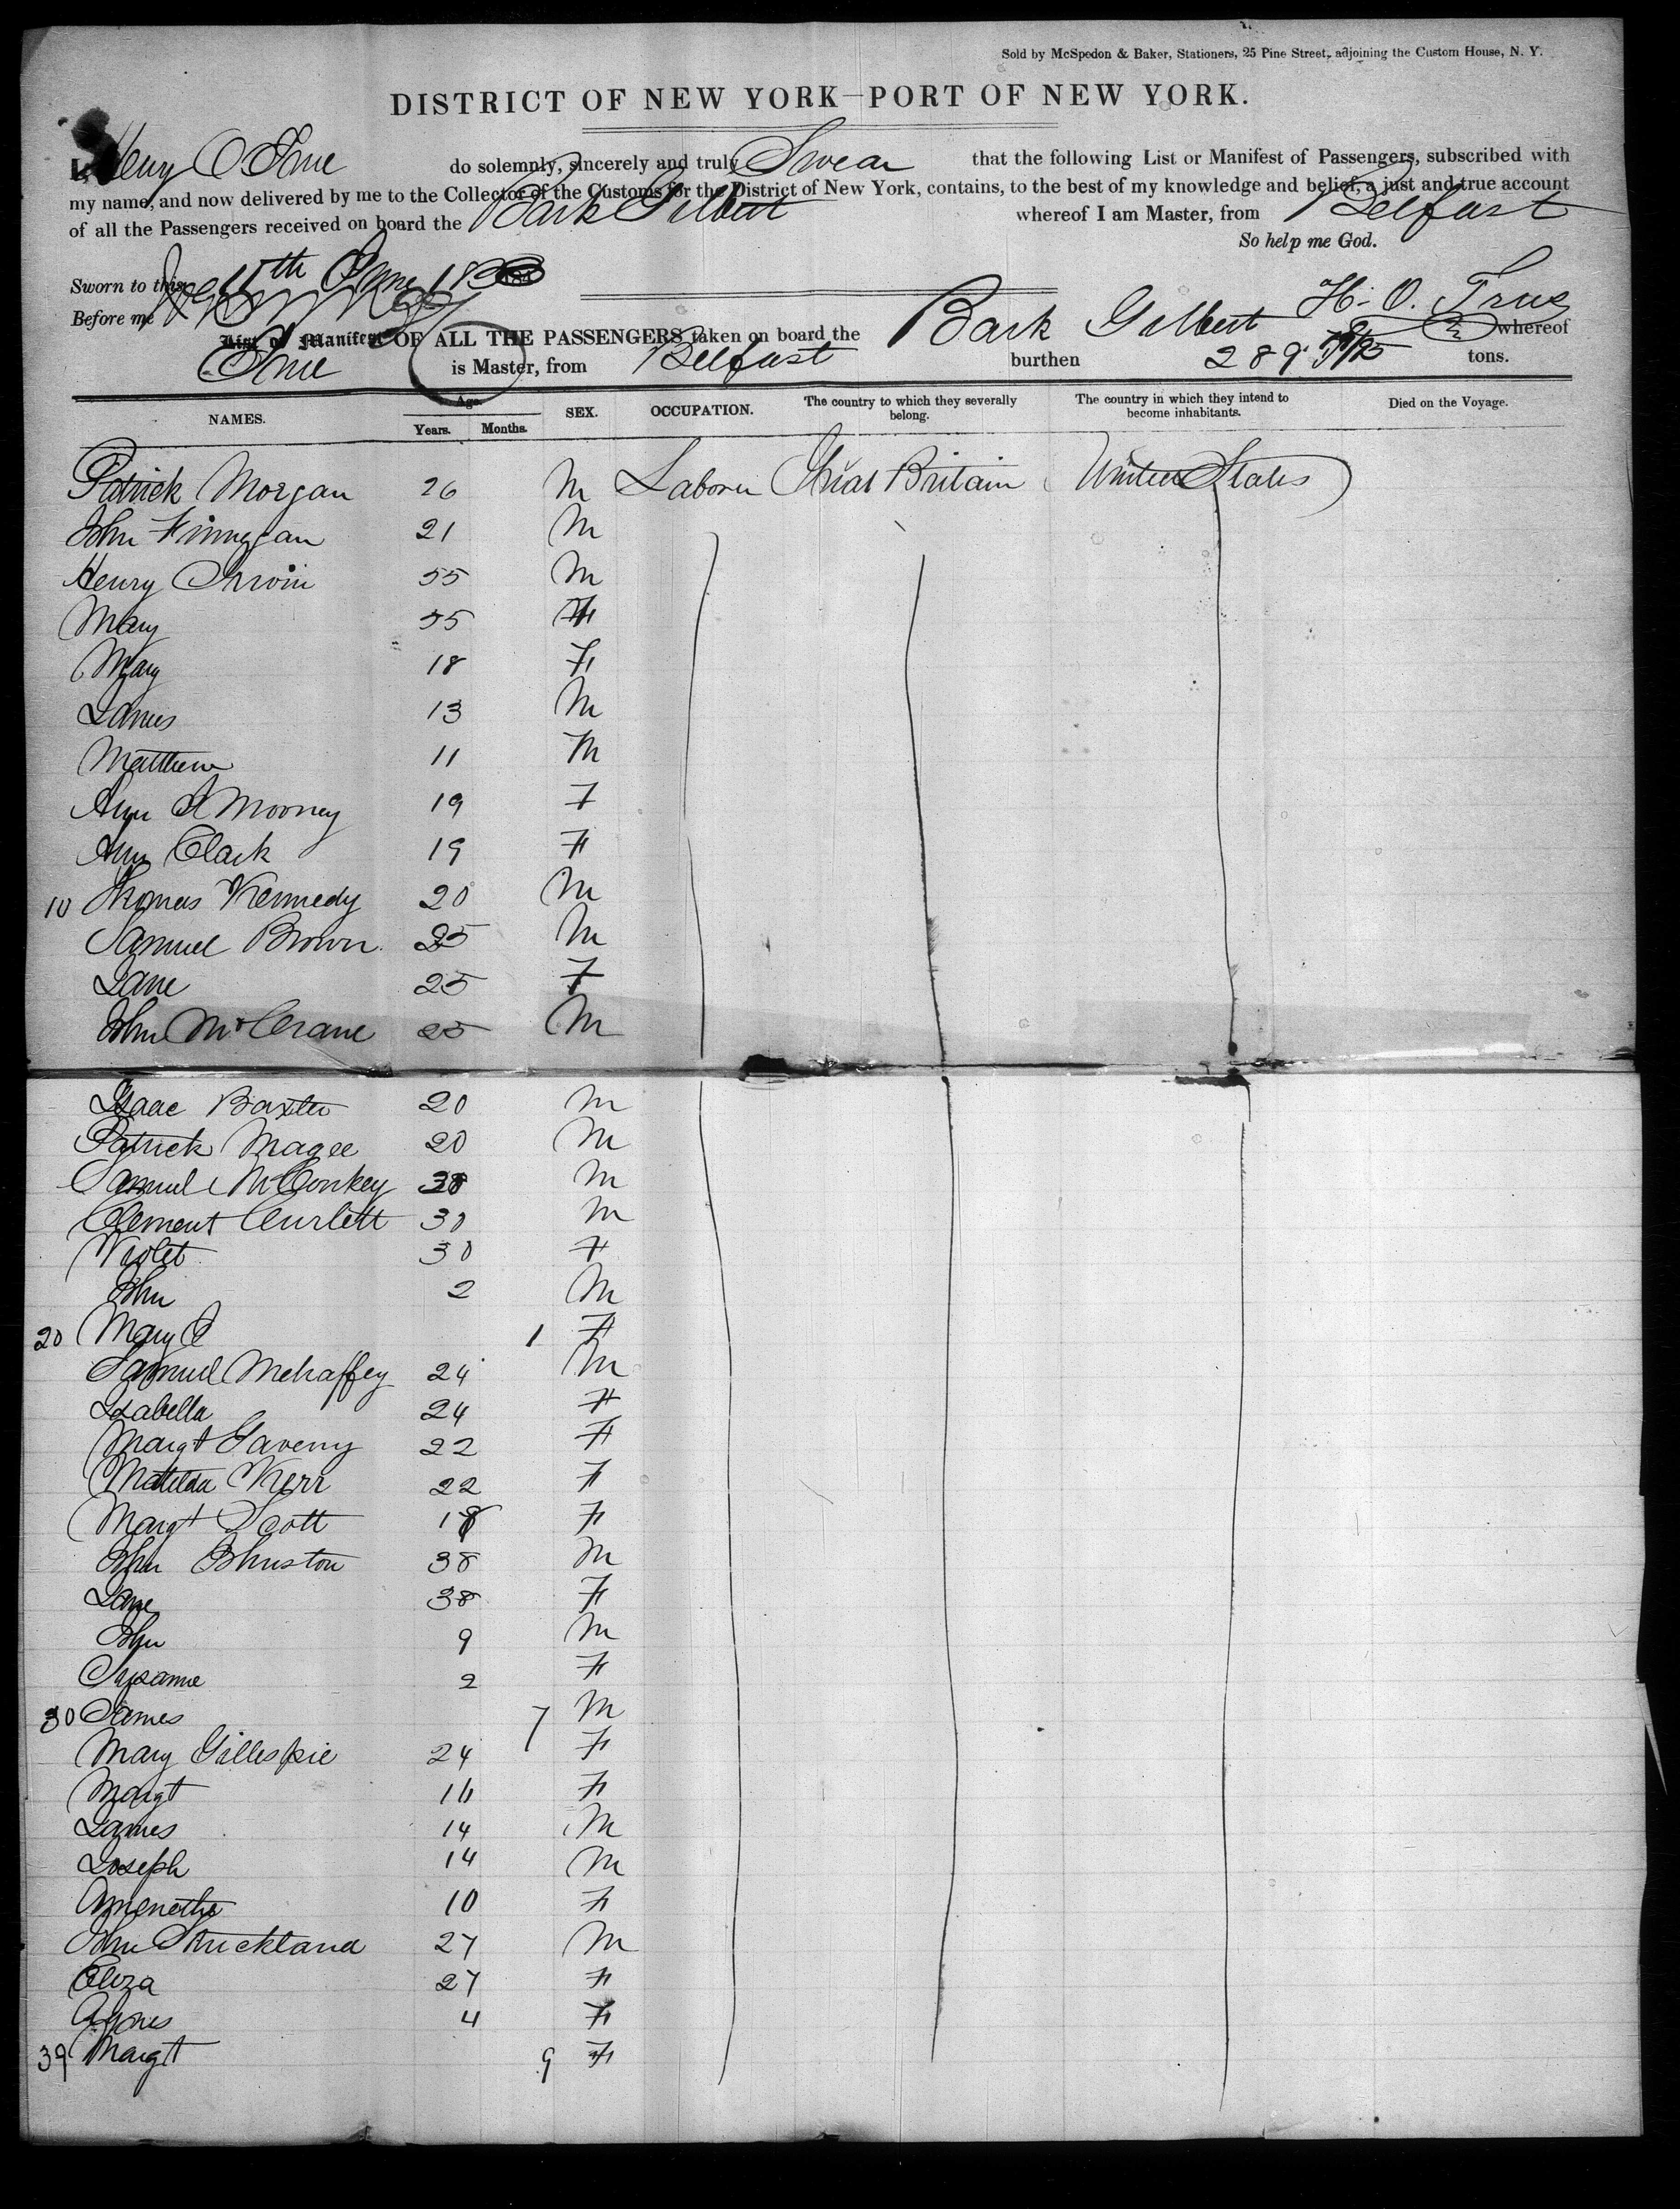 Sold by McSpedon & Baker, Stationers, 25 Pine Street, adjoining the Custom House, N. Y.
DISTRICT OF NEW YORK—PORT OF NEW YORK.
I, Henry O True do solemnly, sincerely and truly Swear that the following List or Manifest of Passengers, subscribed with
my name, and now delivered by me to the Collector of the Customs for the District of New York, contains, to the best of my knowledge and belief, a just and true account
of all the Passengers received on board the Bark Gilbert whereof I am Master, from Belfast
So help me God.
Sworn to this 11th June 18
Before me
H. O. True
List or Manifest OF ALL THE PASSENGERS taken on board the Bark Gilbert whereof
True is Master, from Belfast burthen 289 tons.
NAMES. Age. Years. Months. SEX. OCCUPATION. The country to which they severally belong. The country in which they intend to become inhabitants. Died on the Voyage.
Patrick Morgan 26 M Laborer Great Britain United States
John Finnegan 21 M
Henry Irwin 55 M
Mary 55 F
Mary 18 F
James 13 M
Matthew 11 M
Ann J Mooney 19 F
Ann Clark 19 F
10 Thomas Kennedy 20 M
Samuel Brown 25 M
Jane 25 F
John McCrane 25 M
Isaac Baxter 20 M
Patrick Magee 20 M
Samuel McConkey 38 M
Clement Curlett 30 M
Violet 30 F
John 2 M
20 Mary J 1 F
Samuel Mehaffey 24 M
Isabella 24 F
Margt Taverny 22 F
Matilda Kerr 22 F
Margt Scott 18 F
John Johnston 38 M
Jane 38 F
John 9 M
Susanne 2 F
30 James 7 M
Mary Gillespie 24 F
Margt 16 F
James 14 M
Joseph 14 M
10 F
John Strickland 27 M
Eliza 27 F
Agnes 4 F
39 Margt 9 F